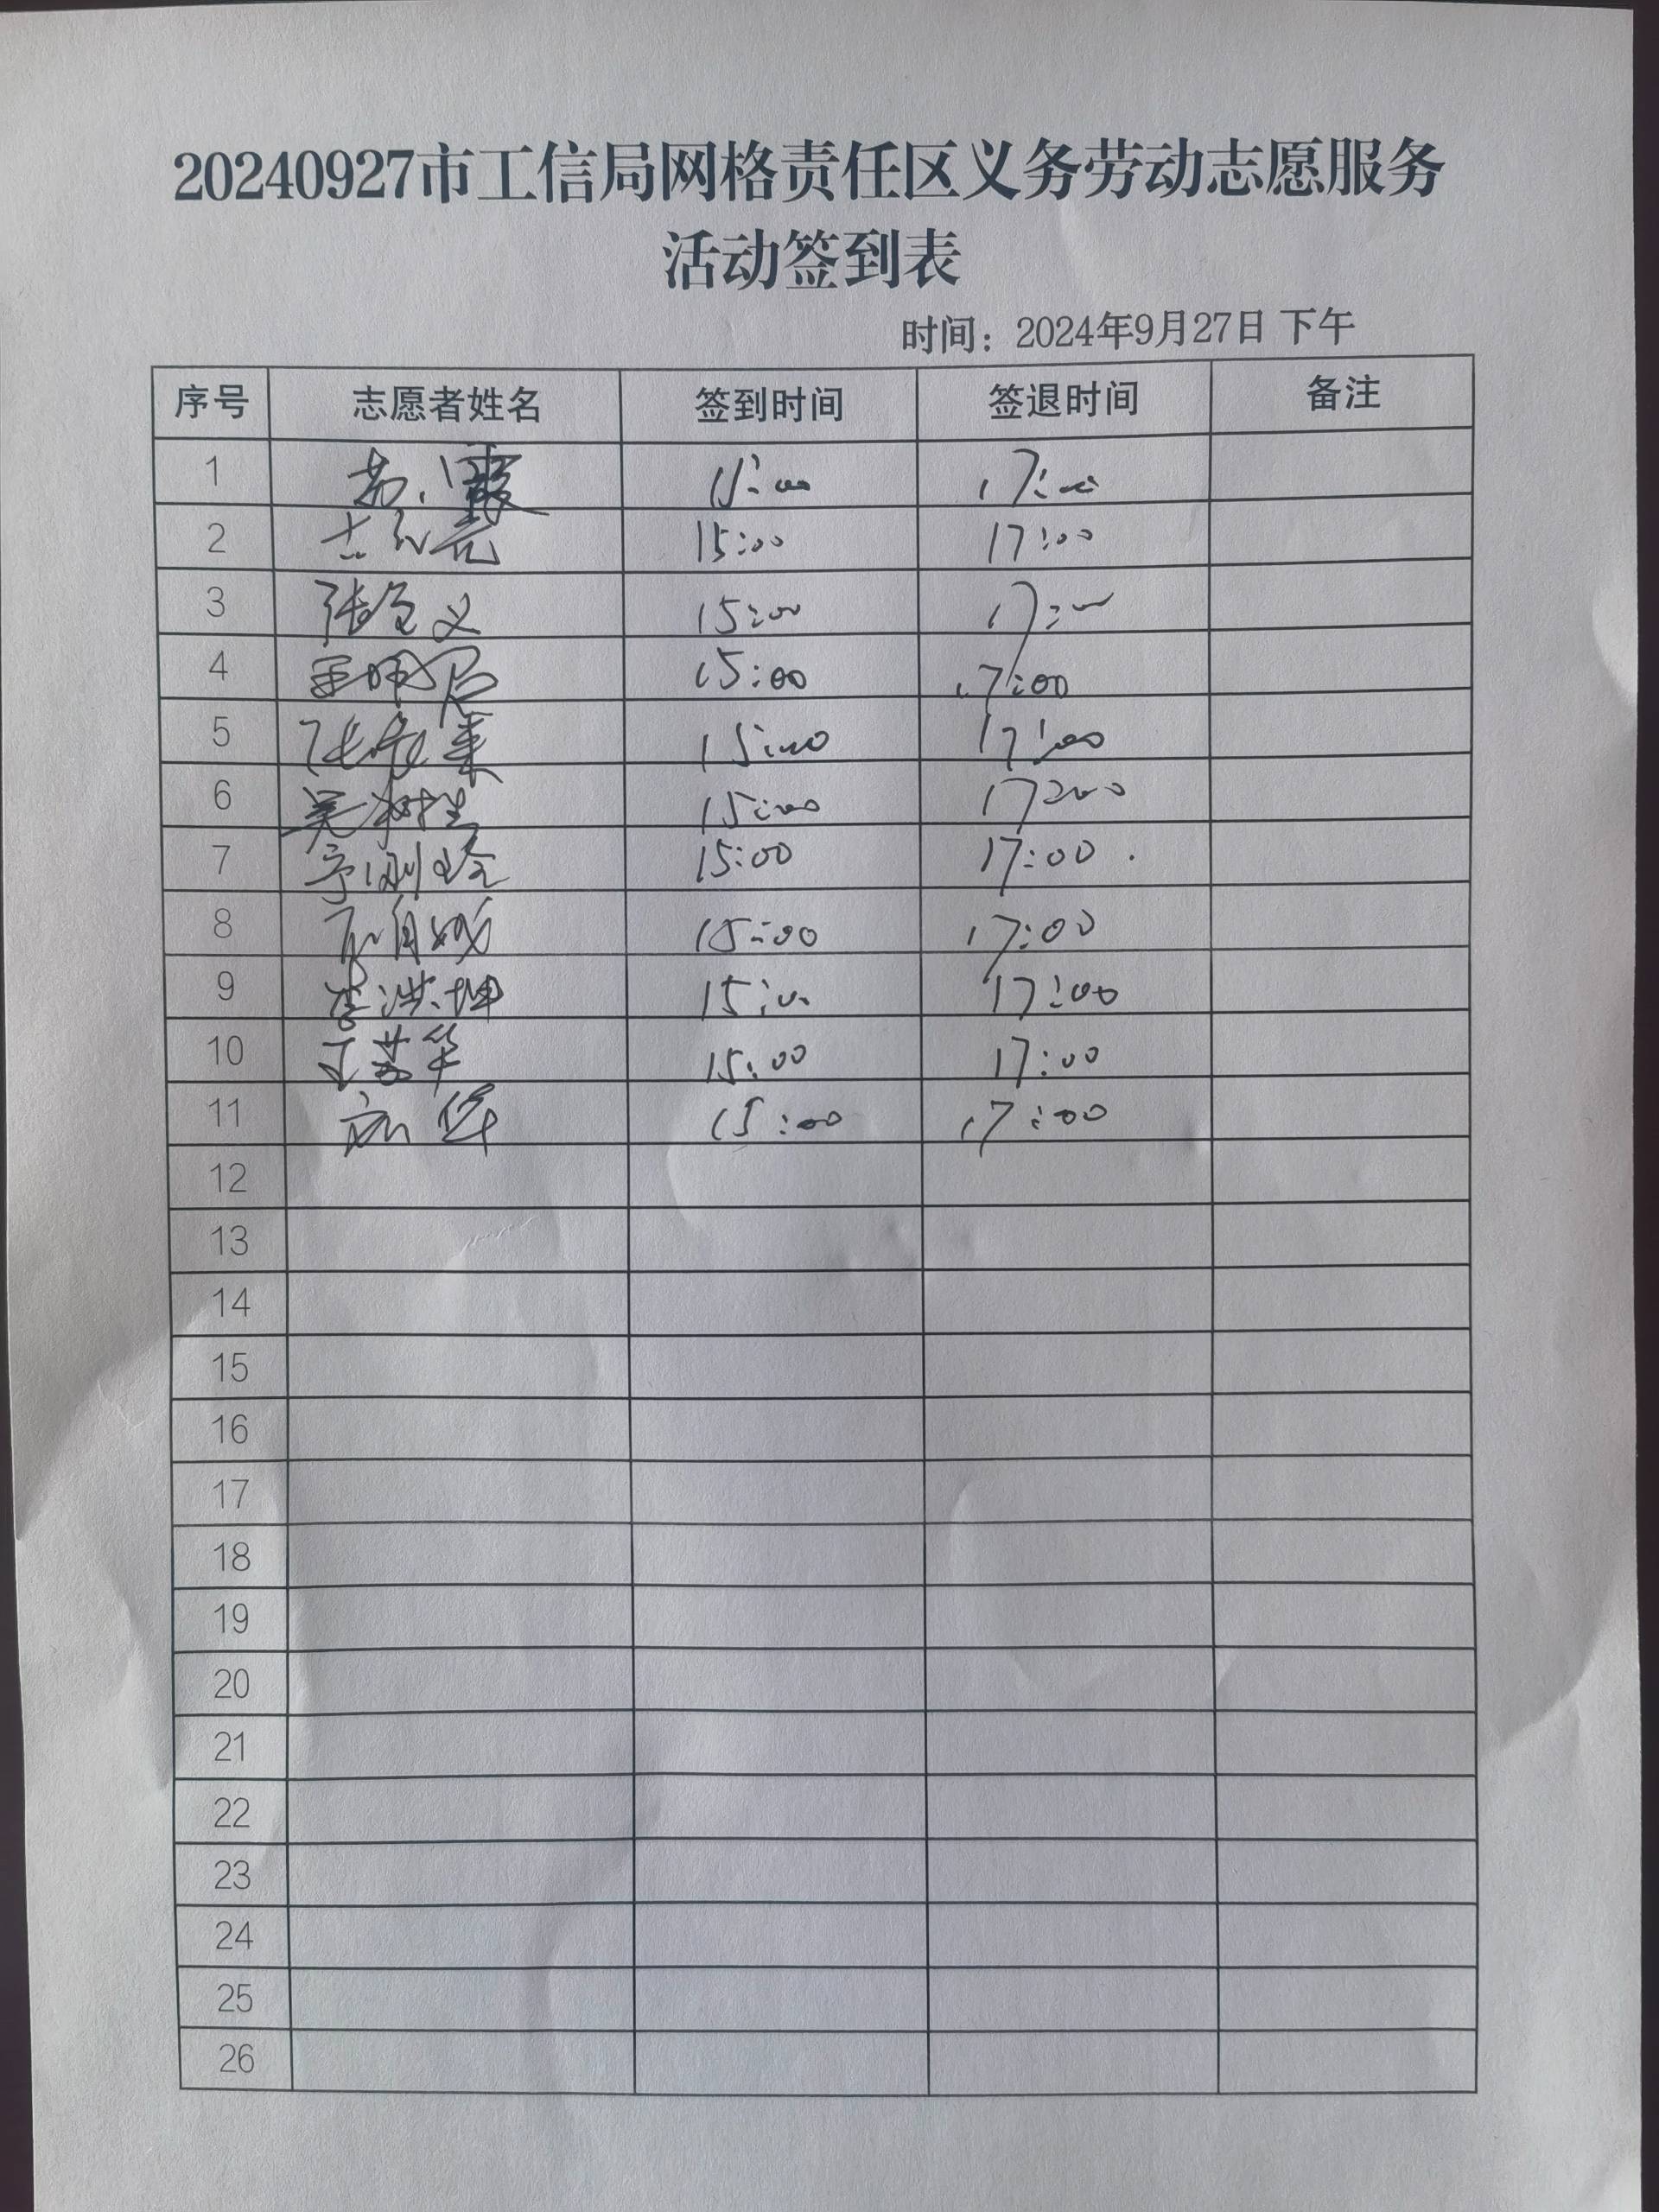 20240927市工信局网格责任区义务劳动志愿服务
活动签到表
时间：2024年9月27日 下午
序号 志愿者姓名 签到时间 签退时间 备注
1 15:00 17:00
2 15:00 17:00
3 15:00 17:00
4 15:00 17:00
5 15:00 17:00
6 吴树生 15:00 17:00
7 15:00 17:00
8 15:00 17:00
9 李洪坤 15:00 17:00
10 15:00 17:00
11 15:00 17:00
12
13
14
15
16
17
18
19
20
21
22
23
24
25
26